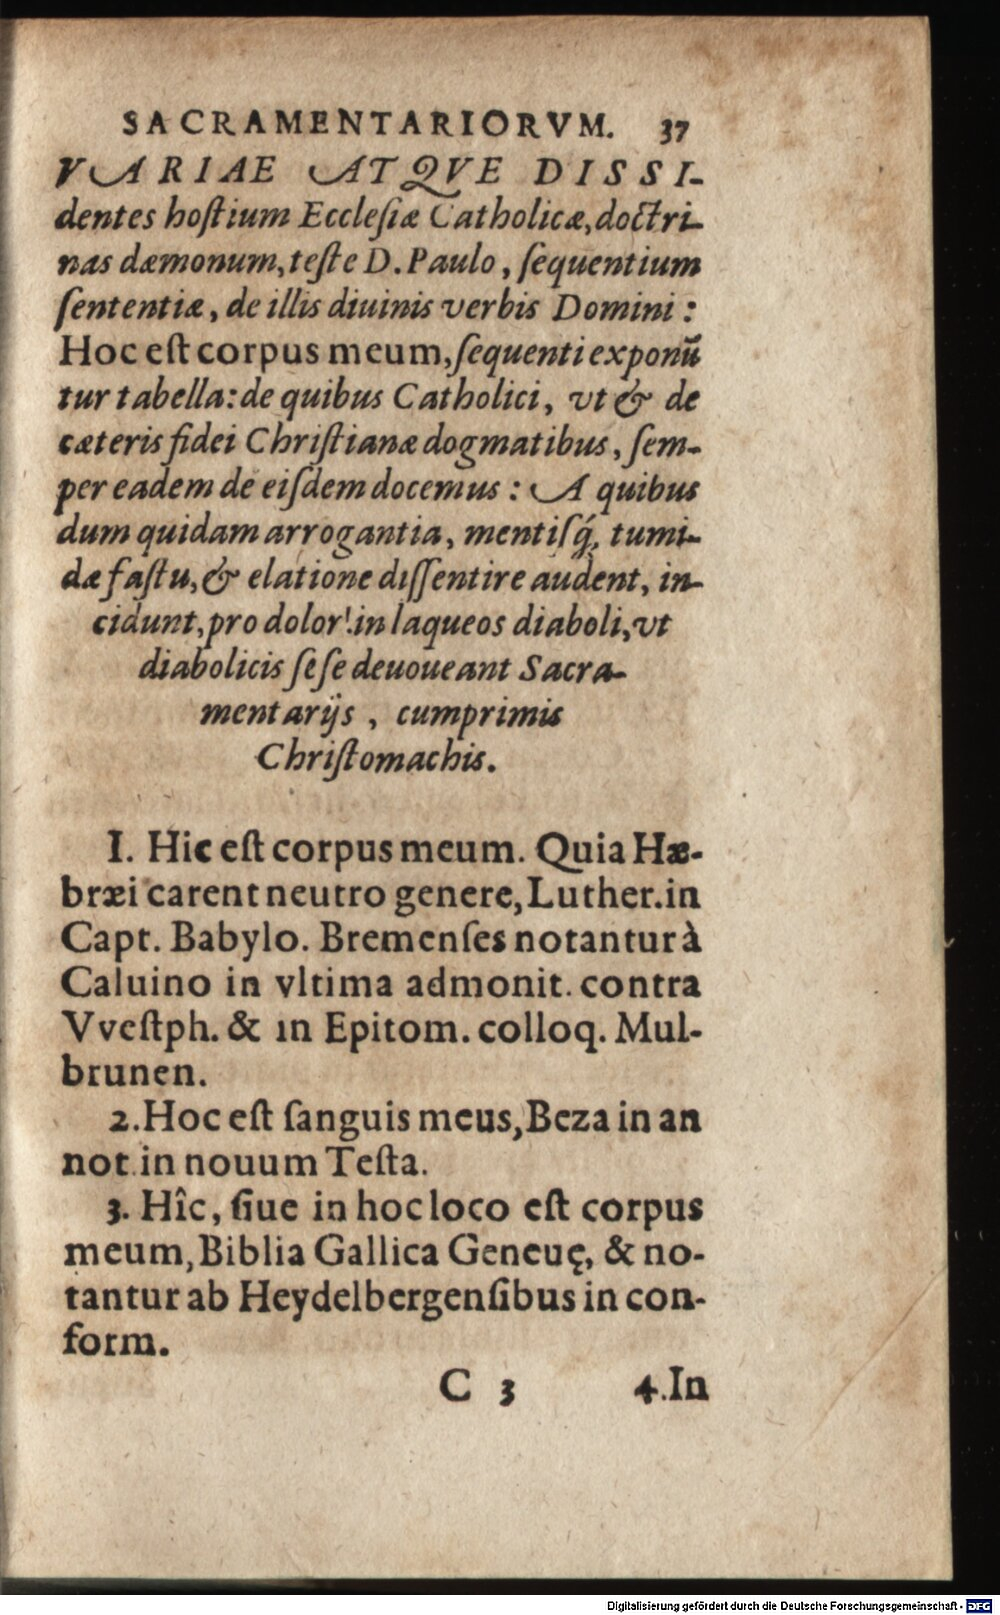 SACRAMENTARIORVM. 37
VARIAE ATQVE DISSI-
dentes hoſtium Eccleſiæ Catholicæ, doctri-
nas dæmonum, teſte D. Paulo, ſequentium
ſententiæ, de illis diuinis verbis Domini:
Hoc eſt corpus meum, ſequenti exponũ
tur tabella: de quibus Catholici, vt & de
cæteris fidei Chriſtianæ dogmatibus, ſem-
per eadem de eiſdem docemus: A quibus
dum quidam arrogantia, mentiſq́; tumi-
dæ faſtu, & elatione diſſentire audent, in-
cidunt, pro dolor! in laqueos diaboli, vt
diabolicis ſeſe deuoueant Sacra-
mentarijs, cumprimis
Chriſtomachis.
I. Hic eſt corpus meum. Quia Hæ-
bræi carent neutro genere, Luther. in
Capt. Babylo. Bremenſes notantur à
Caluino in vltima admonit. contra
Vveſtph. & in Epitom. colloq. Mul-
brunen.
2. Hoc eſt ſanguis meus, Beza in an
not. in nouum Teſta.
3. Hîc, ſiue in hoc loco eſt corpus
meum, Biblia Gallica Geneuę, & no-
tantur ab Heydelbergenſibus in con-
form.
C 3 4. In
Digitalisierung gefördert durch die Deutsche Forschungsgemeinschaft - DFG